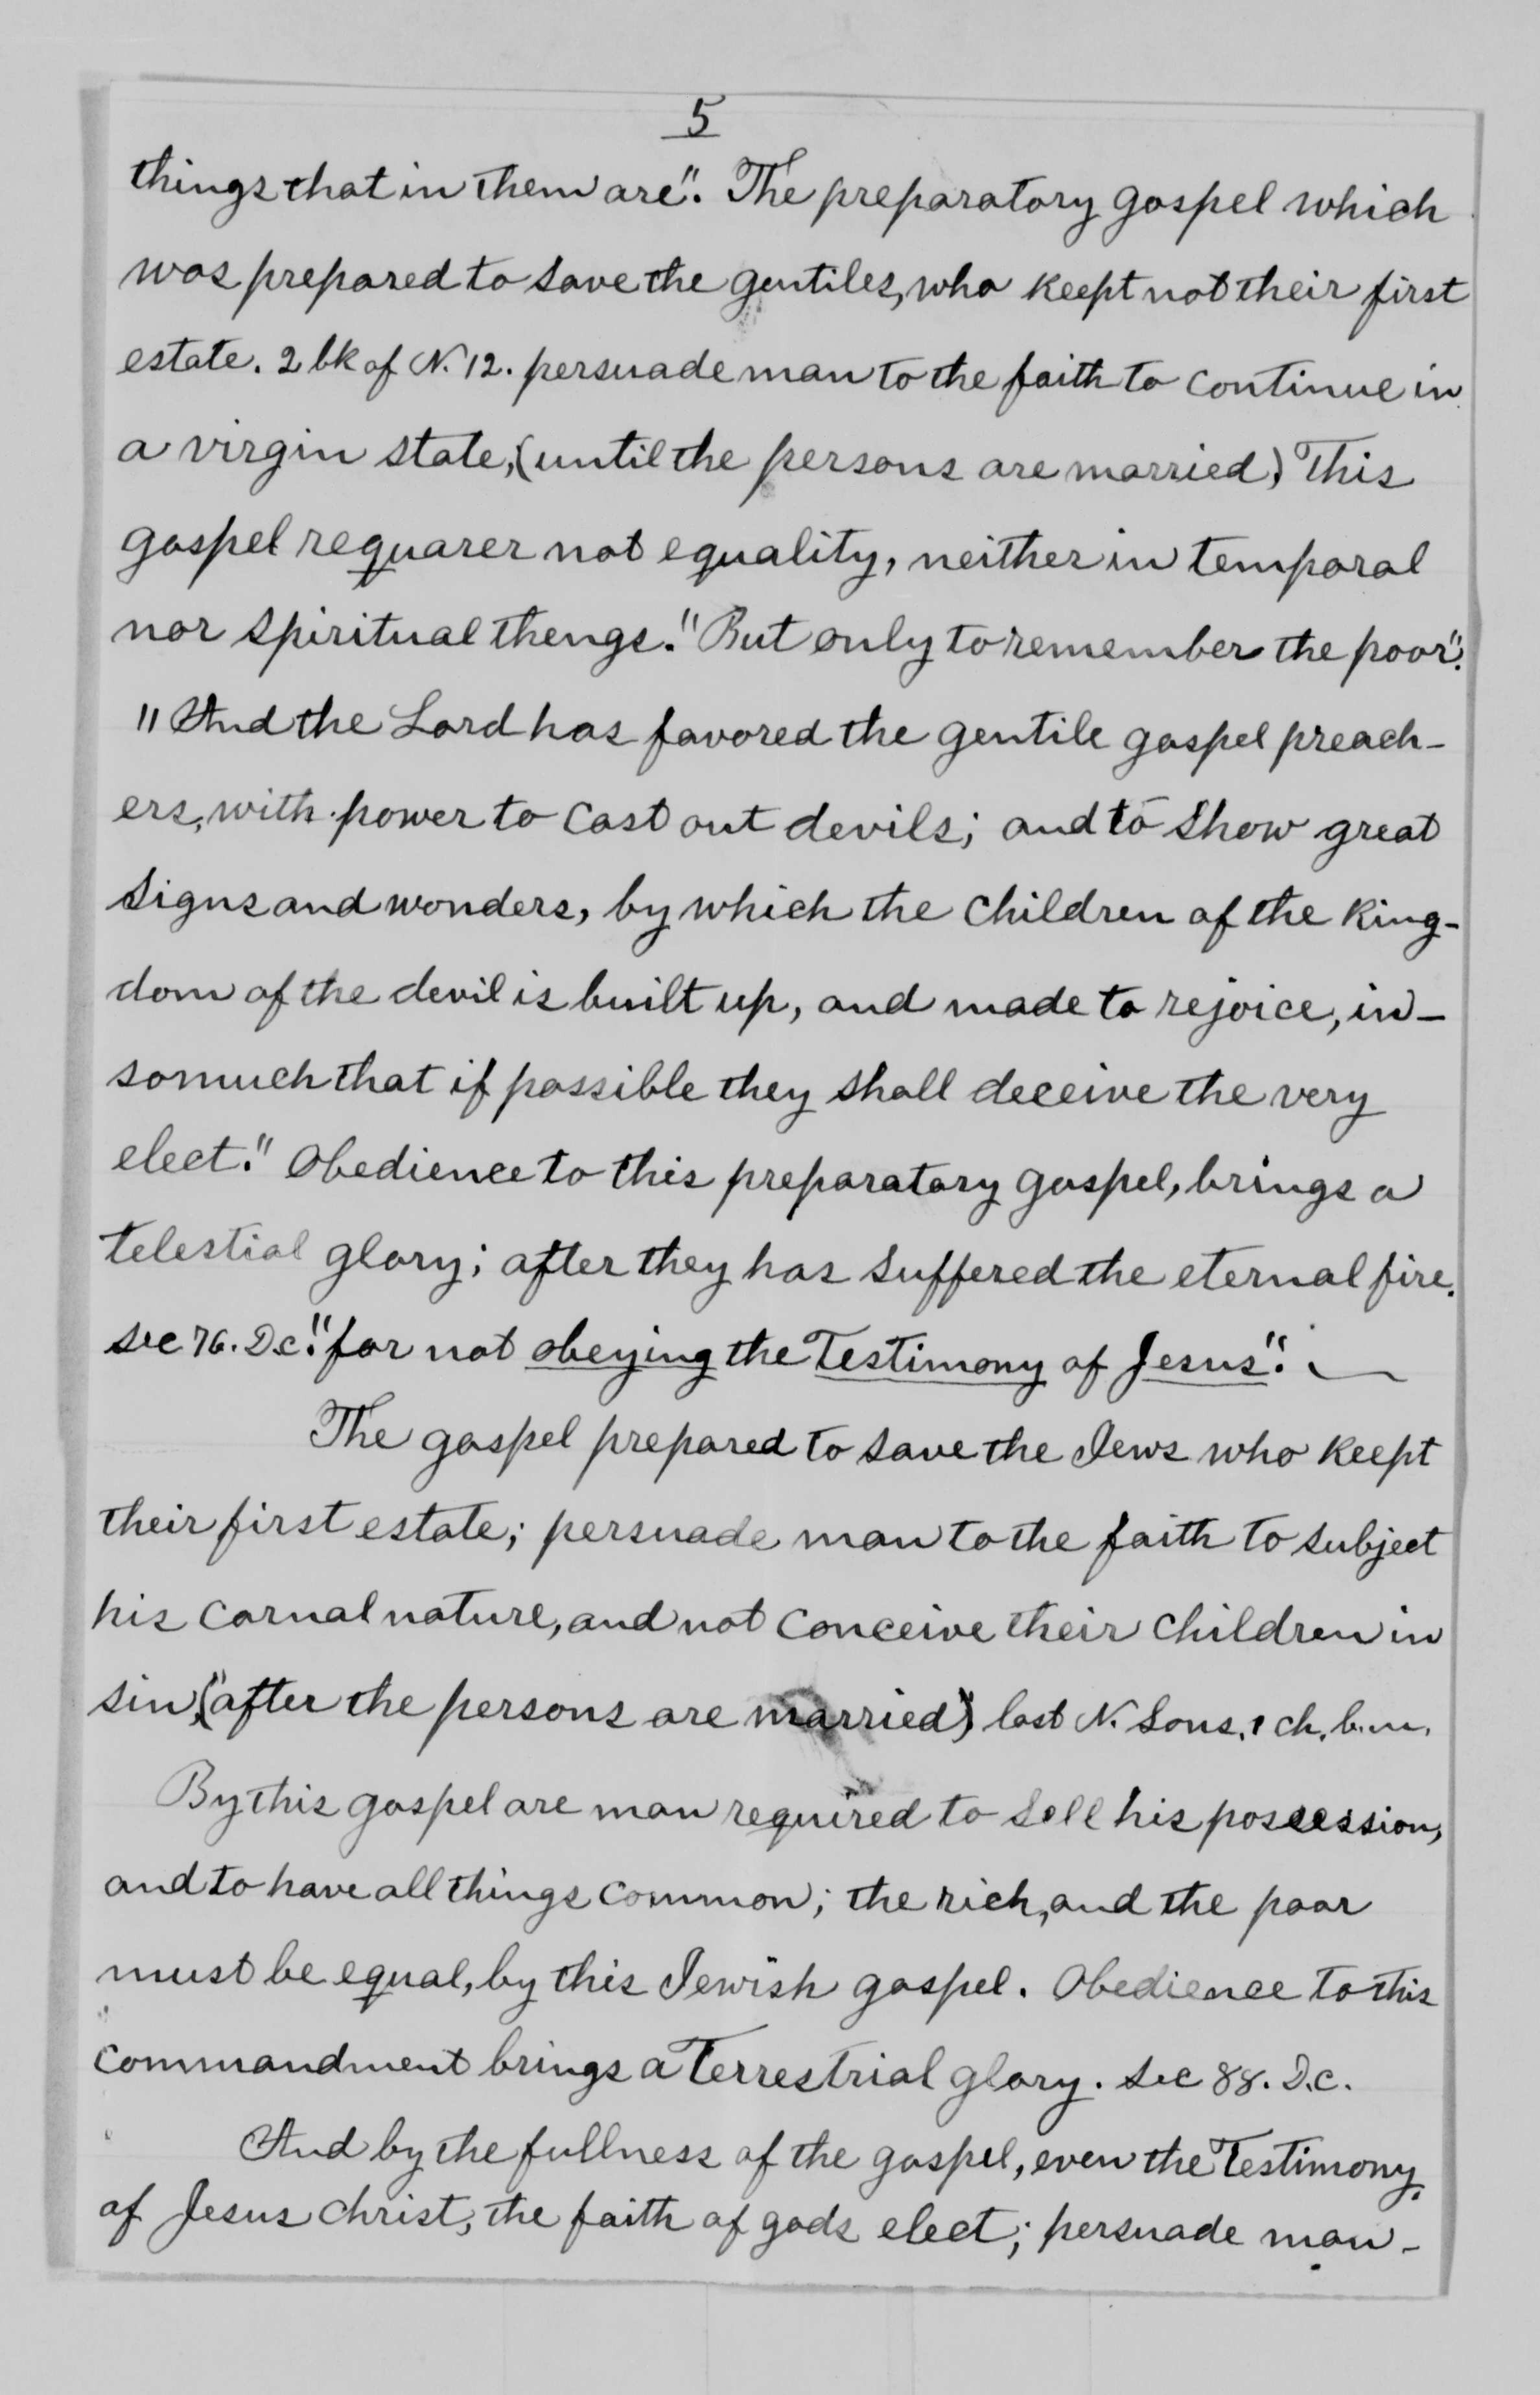 5
things that in them are". The preparatory gospel which
was prepared to save the gentiles, who keept not their first
estate. 2 bk of N. 12. persuade man to the faith to continue in
a virgin state, (until the persons are married) This
gospel requarer not equality, neither in temporal
nor spiritual thengs. "But only to remember the poor".
"And the Lord has favored the gentile gospel preach-
ers, with power to cast out devils; and to show great
signs and wonders, by which the children of the king-
dom of the devil is built up, and made to rejoice, in-
somuch that if possible they shall deceive the very
elect." Obedience to this preparatory gospel, brings a
telestial glory; after they has suffered the eternal fire.
sec 76. D.c. "for not obeying the Testimony of Jesus".
The gospel prepared to save the Jews who keept
their first estate; persuade man to the faith to subject
his carnal nature, and not conceive their children in
sin, "(after the persons are married) last N. Sons. 1 ch. b.m.
By this gospel are man required to sell his possession,
and to have all things common; the rich, and the poor
must be equal, by this Jewish gospel. Obedience to this
commandment brings a Terrestrial glory. sec 88. D.C.
And by the fullness of the gospel, even the Testimony.
of Jesus Christ, the faith of gods elect; persuade man-